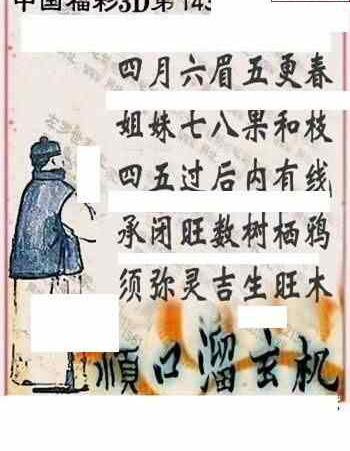 中国福彩3D第143
四月六眉五更春
姐妹七八果和枝
四五过后内有线
承闭旺数树栖鸦
须弥灵吉生旺木
顺口溜玄机